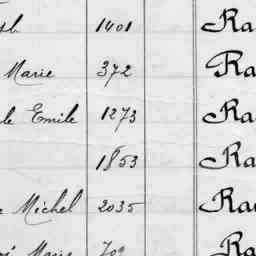 1401 Ra
Marie 372 Ra
le Emile 1273 Ra
1853 Ra
Michel 2035 Ra
Marie 709 Ra